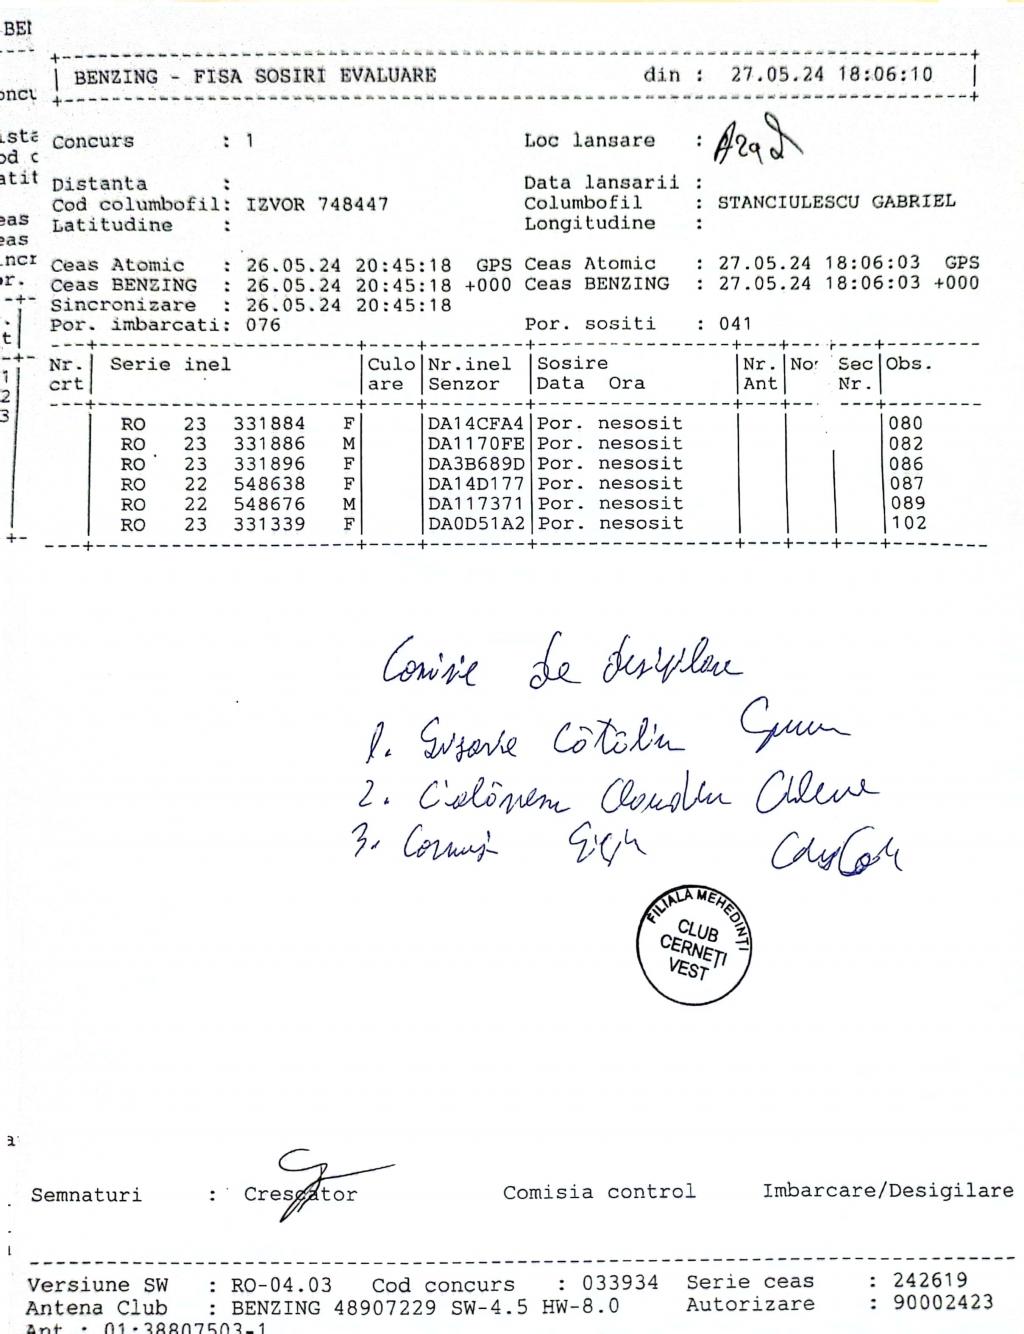 BENZING - FISA SOSIRI EVALUARE din : 27.05.24 18:06:10
Concurs : 1 Loc lansare : Arad
Distanta : Data lansarii :
Cod columbofil: IZVOR 748447 Columbofil : STANCIULESCU GABRIEL
Latitudine : Longitudine :
Ceas Atomic : 26.05.24 20:45:18 GPS Ceas Atomic : 27.05.24 18:06:03 GPS
Ceas BENZING : 26.05.24 20:45:18 +000 Ceas BENZING : 27.05.24 18:06:03 +000
Sincronizare : 26.05.24 20:45:18
Por. imbarcati: 076 Por. sositi : 041
Nr. Serie inel Culo Nr.inel Sosire Nr. No Sec Obs.
crt are Senzor Data Ora Ant Nr.
RO 23 331884 F DA14CFA4 Por. nesosit 080
RO 23 331886 M DA1170FE Por. nesosit 082
RO 23 331896 F DA3B689D Por. nesosit 086
RO 22 548638 F DA14D177 Por. nesosit 087
RO 22 548676 M DA117371 Por. nesosit 089
RO 23 331339 F DA0D51A2 Por. nesosit 102
Comisie de desigilare
1. Cătălin
2. Claudiu
3.
FILIALA MEHEDINTI
CLUB
CERNETI
VEST
Semnaturi : Crescator Comisia control Imbarcare/Desigilare
Versiune SW : RO-04.03 Cod concurs : 033934 Serie ceas : 242619
Antena Club : BENZING 48907229 SW-4.5 HW-8.0 Autorizare : 90002423
Ant : 01:38807503-1